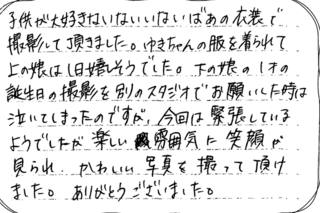 子供が大好きないないいないばあの衣装で
撮影して頂きました。ゆきちゃんの服を着られて
上の娘は1日嬉しそうでした。下の娘の1才の
誕生日の撮影を別のスタジオでお願いした時は
泣いてしまったのですが、今回は緊張している
ようでしたが楽しい雰囲気に笑顔が
見られ、かわいい写真を撮って頂け
ました。ありがとうございました。